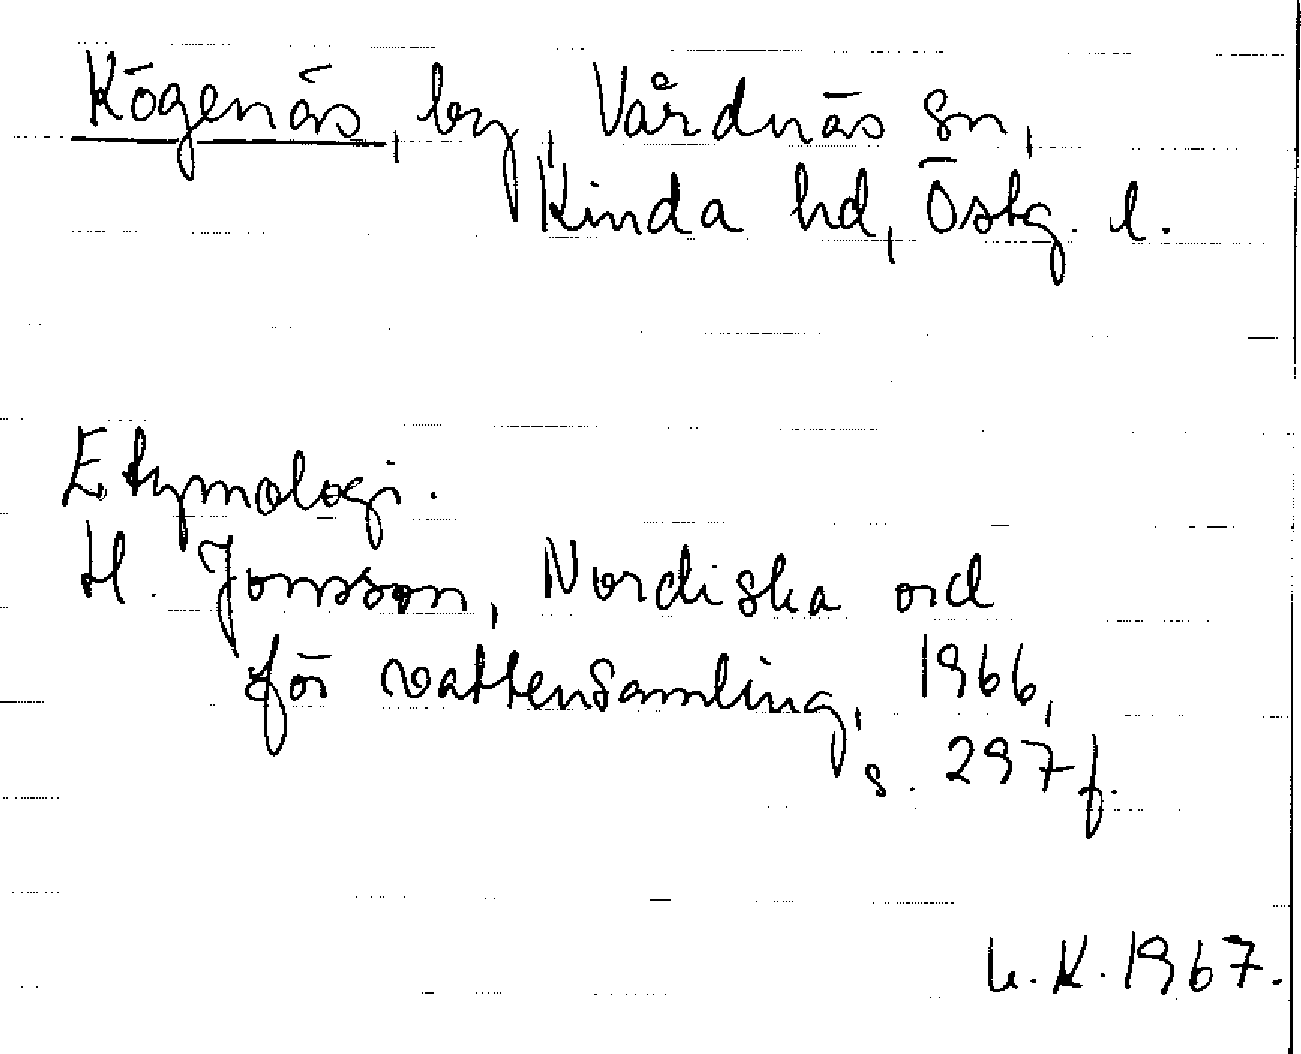 Kögenäs, by, Vårdnäs sn,
Kinda hd, Östg. l.
Etymologi.
H. Jonsson, Nordiska ord
för vattensamling, 1966,
s. 297 f.
L. K. 1967.